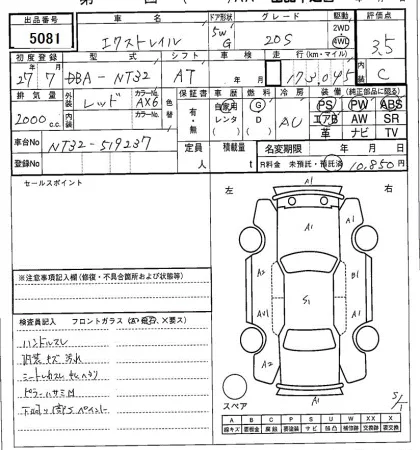 出品番号 車名 ドア形状 グレード 駆動 評価点
5081 エクストレイル 5W G 20S 2WD 4WD 3.5
初度登録 型式 シフト 車検 走行(km・マイル)
27年 7月 DBA-NT32 AT 年 月 173,045 C
排気量 外装 レッド カラーNo. AX6 色替 内装 カラーNo. 保証書 車歴 燃料 冷房 装備(純正部品に限る)
2000 c.c. 有・無 自家用 レンタ G D AC PS PW ABS
エアB AW SR
革 ナビ TV
車台No NT32-519237 定員 人 積載量 t 名変期限 年 月 日
登録No R料金 未預託・預託済 10,850円
セールスポイント 左 右
A1
A1
A2 A1
S1
AU1 A1
A2
A1
※注意事項記入欄(修復・不具合箇所および状態等)
検査員記入 フロントガラス
ハンドルスレ
内装キズ汚れ
スペア S/1
A B C P S U W X XX
線キズ 要板金 腐蝕 要塗装 サビ 凹凸 補修跡 要交換